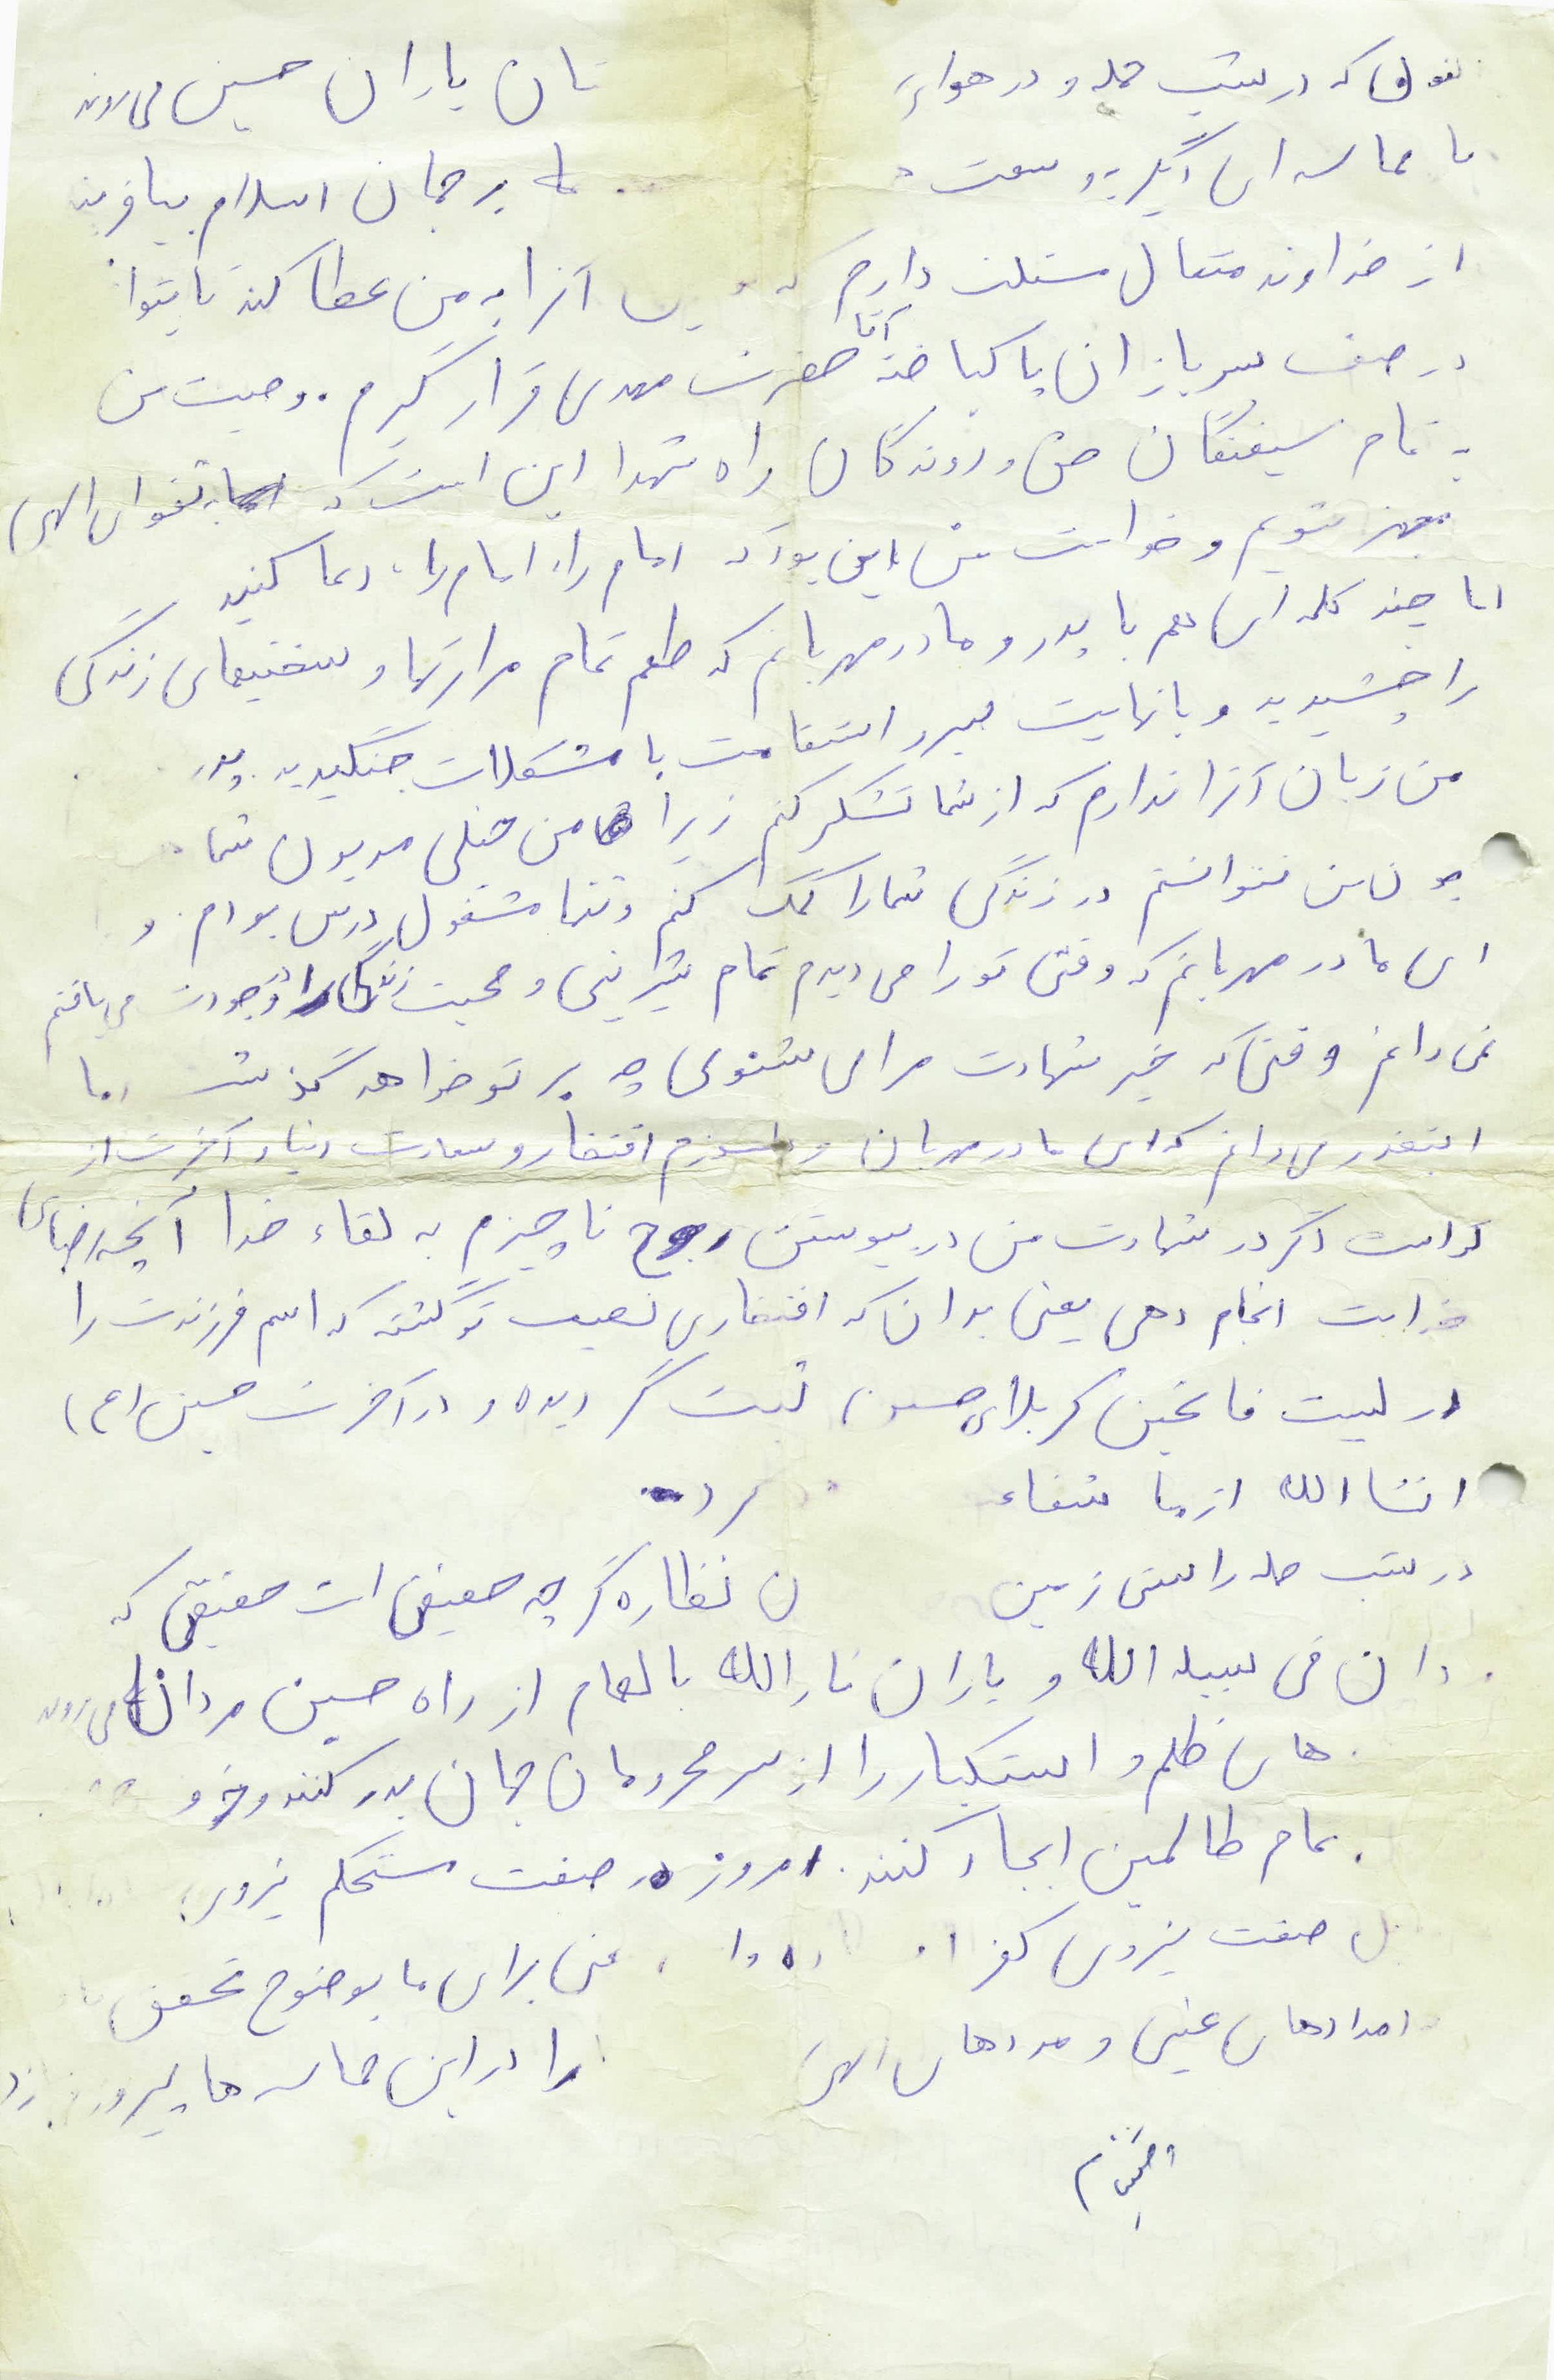 که در شب حمله و در هوای یاران حسین می‌روند
با حماسه‌ای دیگر به وسعت بر جهان اسلام بیافرینند
از خداوند متعال مسئلت دارم که آنرا به من عطا کند تا بتوا
در صف سربازان پاکباخته آقا حضرت مهدی قرار گیرم. وصیت من
به تمام شیفتگان حق و روندگان راه شهدا این است که به تقوای الهی
مجهز شویم و خواست من این بود که امام را، امام را، دعا کنید
اما چند کلمه‌ای هم با پدر و مادر مهربانم که طعم تمام مرارتها و سختیهای زندگی
را چشیدید و با نهایت صبر و استقامت با مشکلات جنگیدید. پدر
من زبان آنرا ندارم که از شما تشکر کنم زیرا من خیلی مدیون شما
چون من نتوانستم در زندگی شما را کمک کنم و تنها مشغول درس بودم. و
ای مادر مهربانم که وقتی تو را می‌دیدم تمام شیرینی و محبت زندگی را در وجودت می‌یافتم
نمی‌دانم وقتی که خبر شهادت مرا می‌شنوی چه بر تو خواهد گذشت اما
اینقدر می‌دانم که ای مادر مهربان و دلسوزم افتخار و سعادت دنیا و آخرت از
تو است اگر در شهادت من در پیوستن روح ناچیزم به لقاء خدا آنچه رضای
خدا است انجام دهی یعنی بدان که افتخاری نصیب تو گشته که اسم فرزندت را
در لیست فاتحین کربلای حسین ثبت گردیده و در آخرت حسین (ع)
انشاالله از ما شفاعت
در شب حمله راستی زمین نظاره‌گر چه حقیقی است حقیقتی که
فی سبیل الله و یاران ثارالله با الهام از راه حسین مردانه می‌روند
های ظلم و استکبار را از سر محرومان جهان بدر کنند و
تمام ظالمین ایجاد کنند. امروز در صفت مستحکم نیروی
صفت نیروی کفر برای ما بوضوح تحقق
امدادهای غیبی و مددهای الهی را در این حماسه‌ها پیروز
اختتام